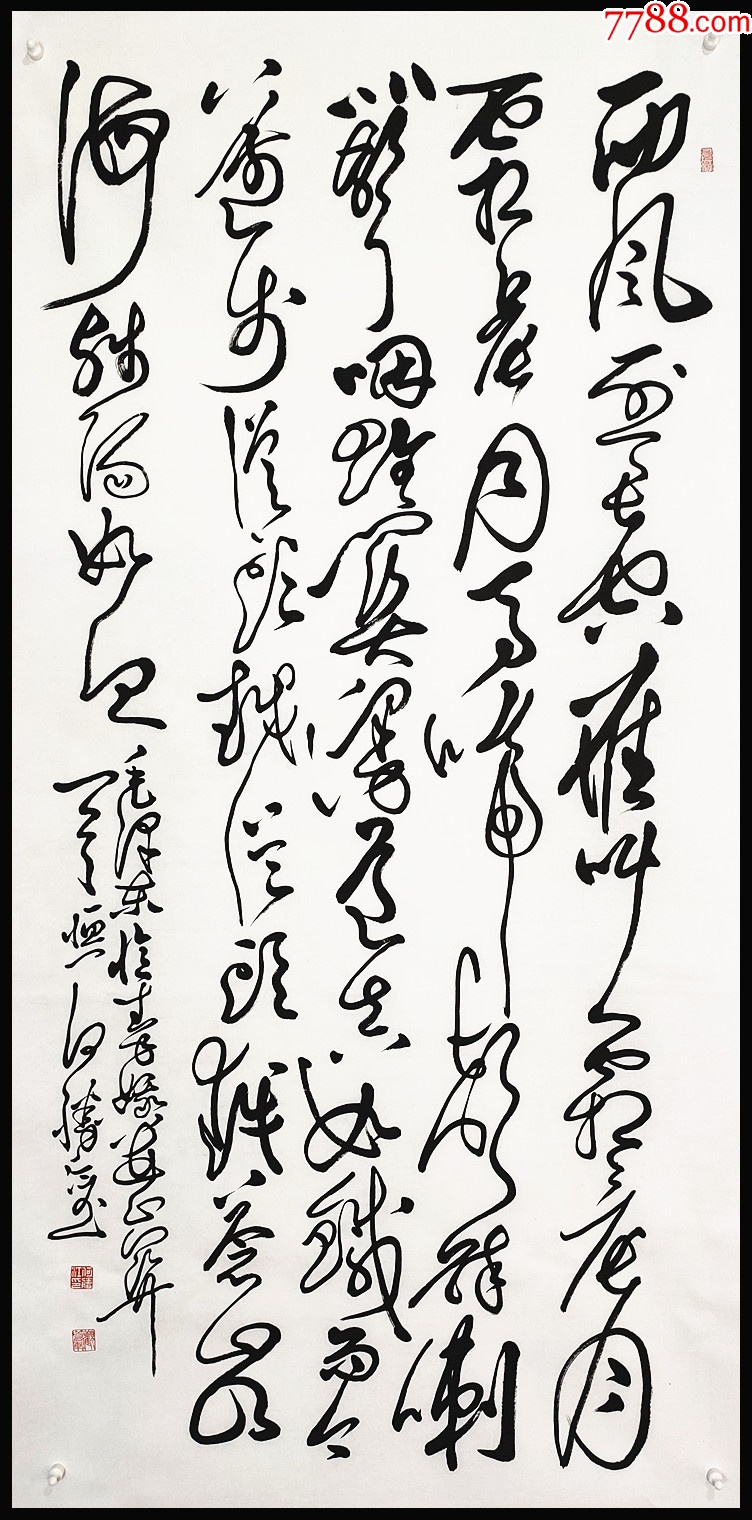 7788.com
西风烈长空雁叫霜晨月
霜晨月马蹄声碎喇
叭声咽雄关漫道真如铁而今
迈步从头越从头越苍山如
海残阳如血
毛泽东忆秦娥娄山关